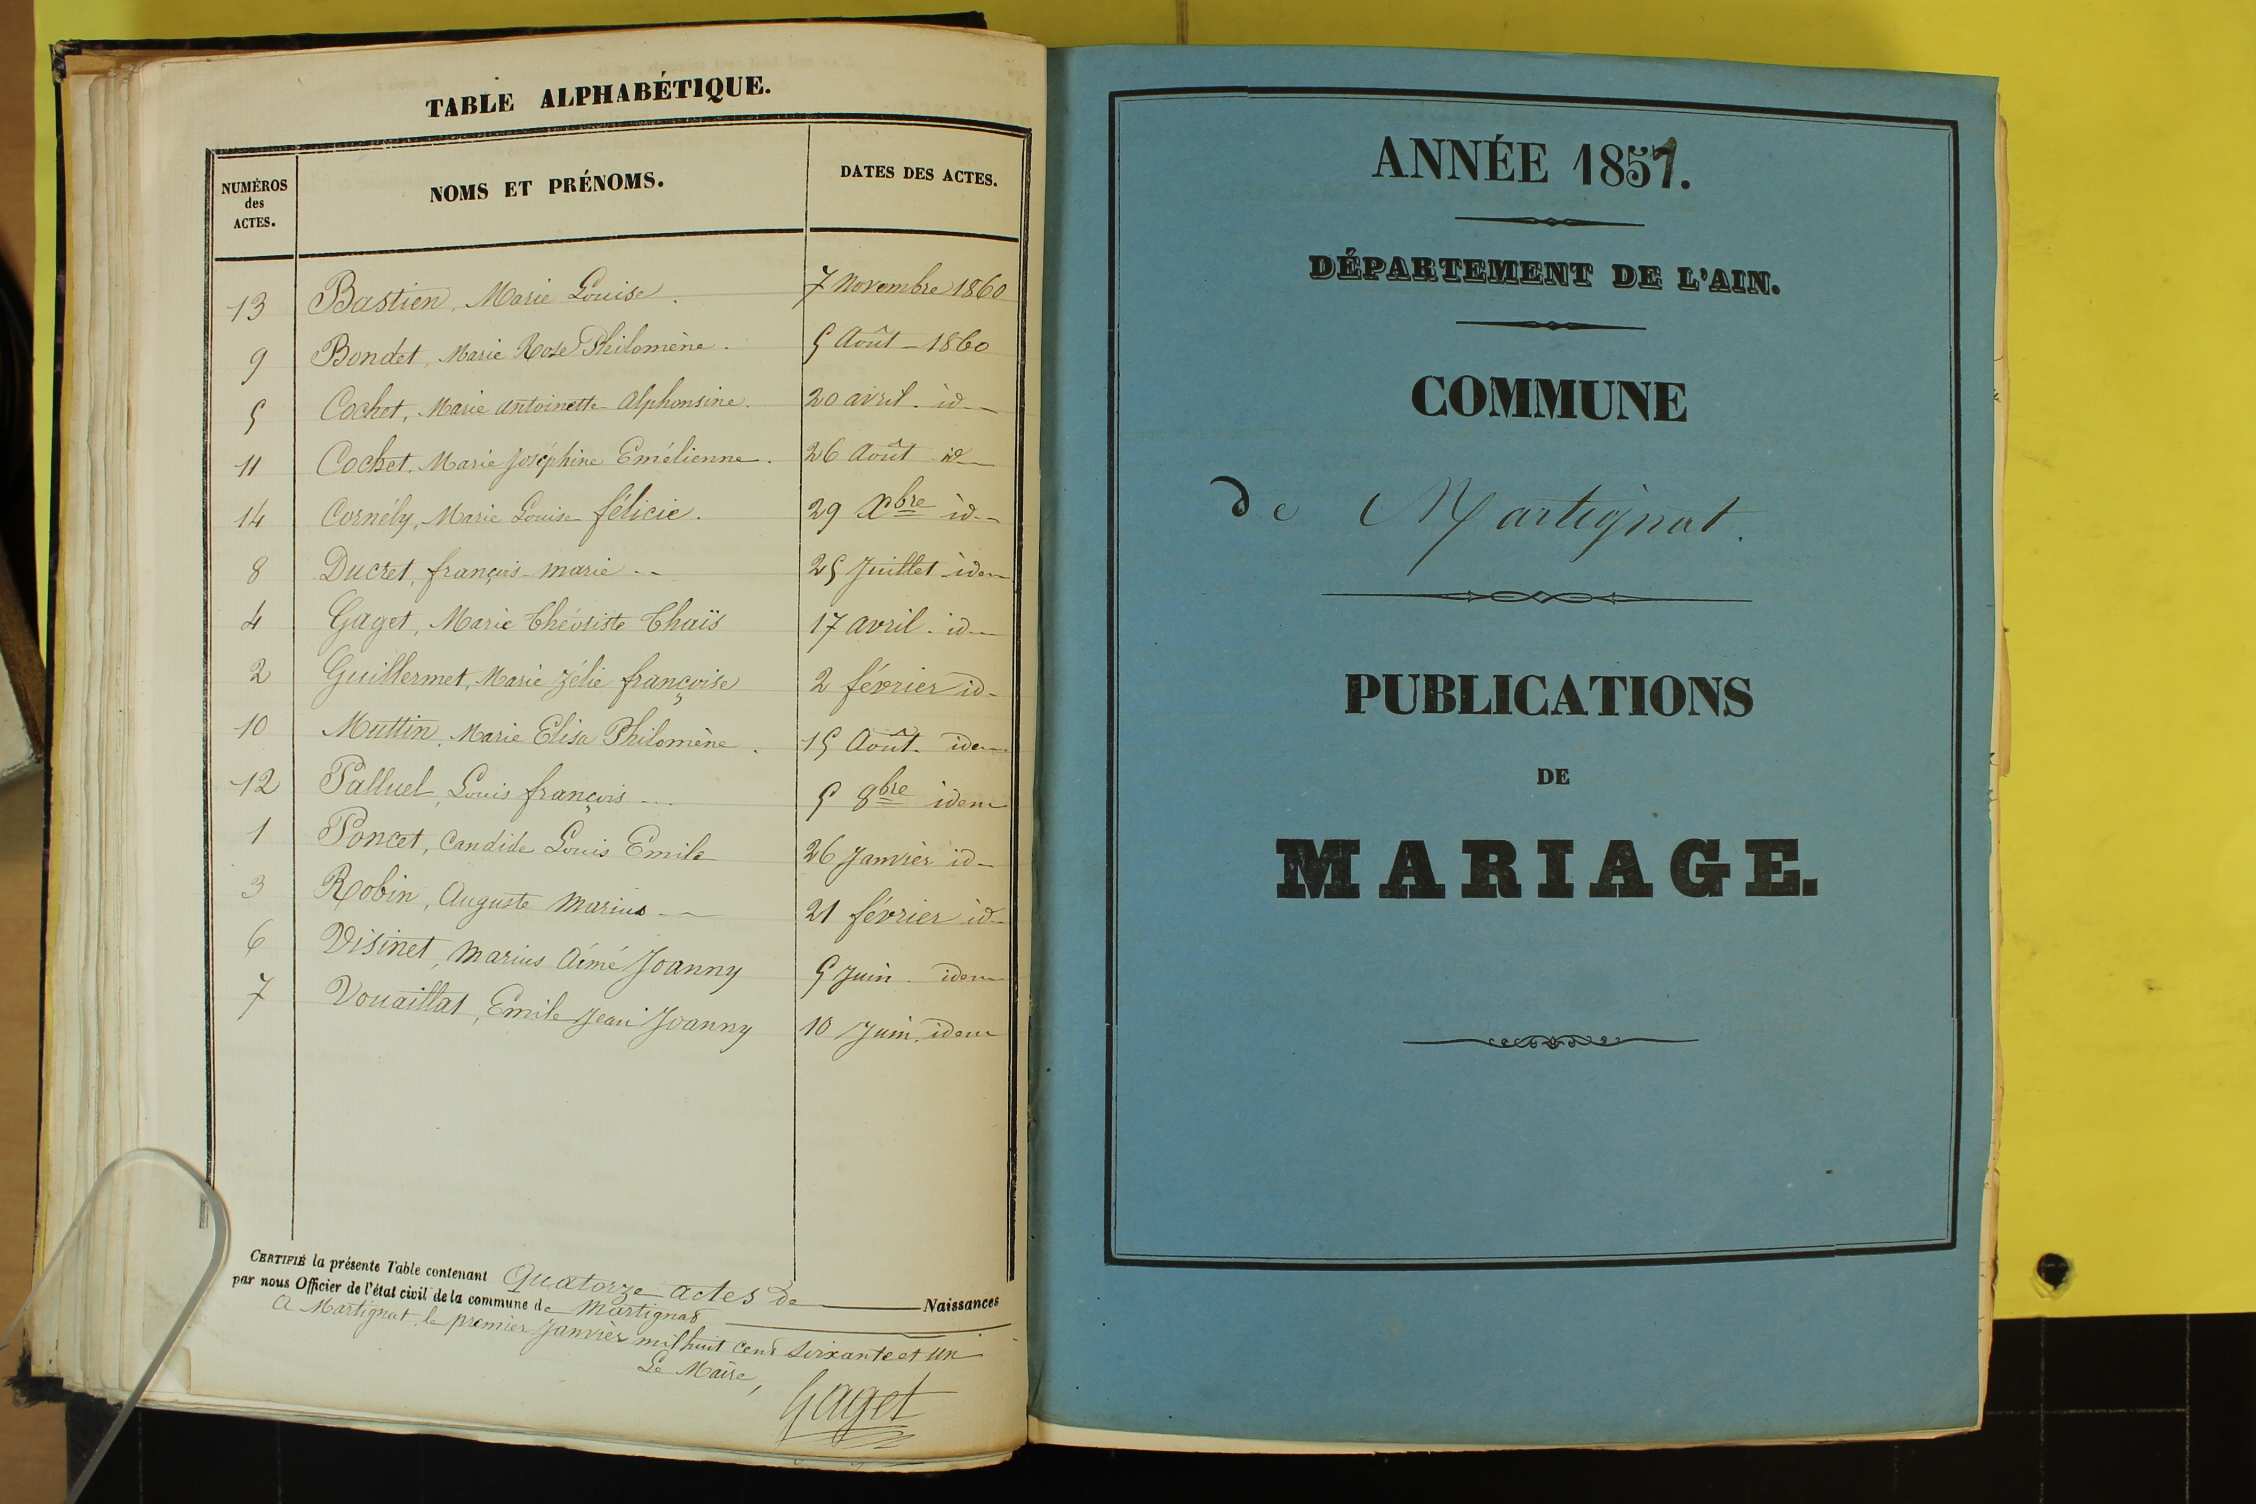 TABLE ALPHABÉTIQUE.
NUMÉROS des ACTES. NOMS ET PRÉNOMS. DATES DES ACTES.
13 Bastien, Marie Louise. 7 Novembre 1860
9 Bondet, Marie Rose Philomène. 5 Août - 1860
5 Cochet, Marie Antoinette Alphonsine. 20 avril. id
11 Cochet, Marie Joséphine Emélienne. 26 Août id
14 Cornély, Marie Louise félicie. 29 Xbre id
8 Ducret, françois marie -- 25 Juillet idem
4 Gaget, Marie Théoriste Thaïs 17 avril. id
2 Guillermet, Marie Zélie françoise 2 février id
10 Muttin, Marie Elisa Philomène. 15 Août. idem
12 Palluel, Louis françois -- 5 8bre idem
1 Poncet, Candide Louis Emile 26 Janvier id
3 Robin, Auguste Marius -- 21 février id
6 Visinet, Marius Aimé Joanny 5 Juin idem
7 Vouaillat, Emile Jean Joanny 10 Juin. idem
CERTIFIÉ la présente Table contenant Quatorze actes de Naissances
par nous Officier de l'état civil de la commune de Martignat
A Martignat, le premier Janvier mil huit cent soixante et un
Le Maire,
Gaget
ANNÉE 1857.
DÉPARTEMENT DE L'AIN.
COMMUNE
de Martignat.
PUBLICATIONS
DE
MARIAGE.